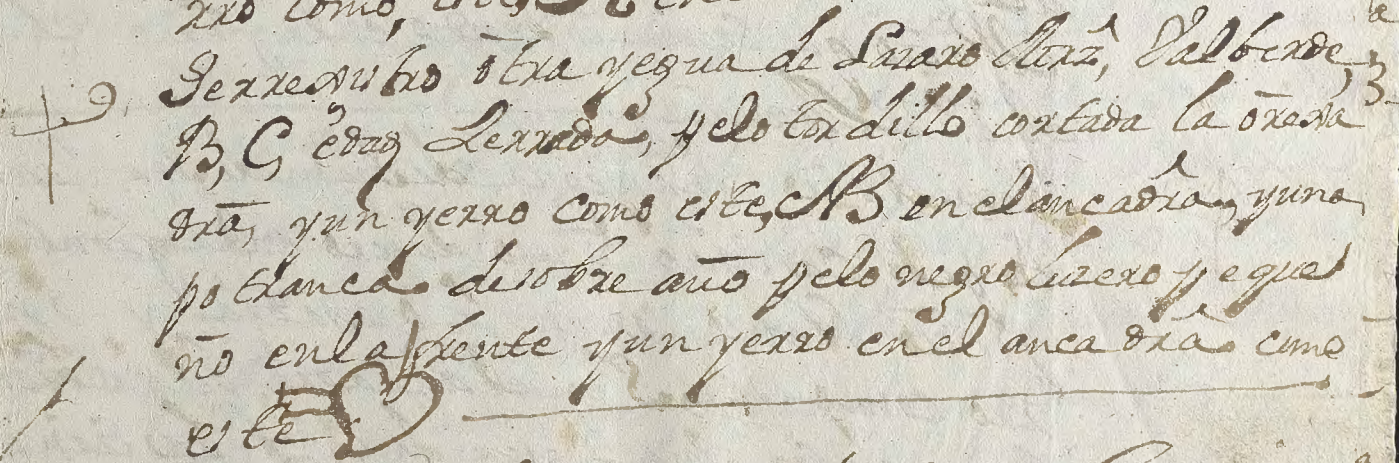 rro como, este,
Se rrexistro otra yegua de Lazaro Mrz, Valberde,
B, C, edad Serrada, pelo tordillo cortada la orexa
dra, y un yerro como este, MB en el anca dra, y una
potranca de sobre año pelo negro luzero peque
ño en la frente y un yerro en el anca dra como
este